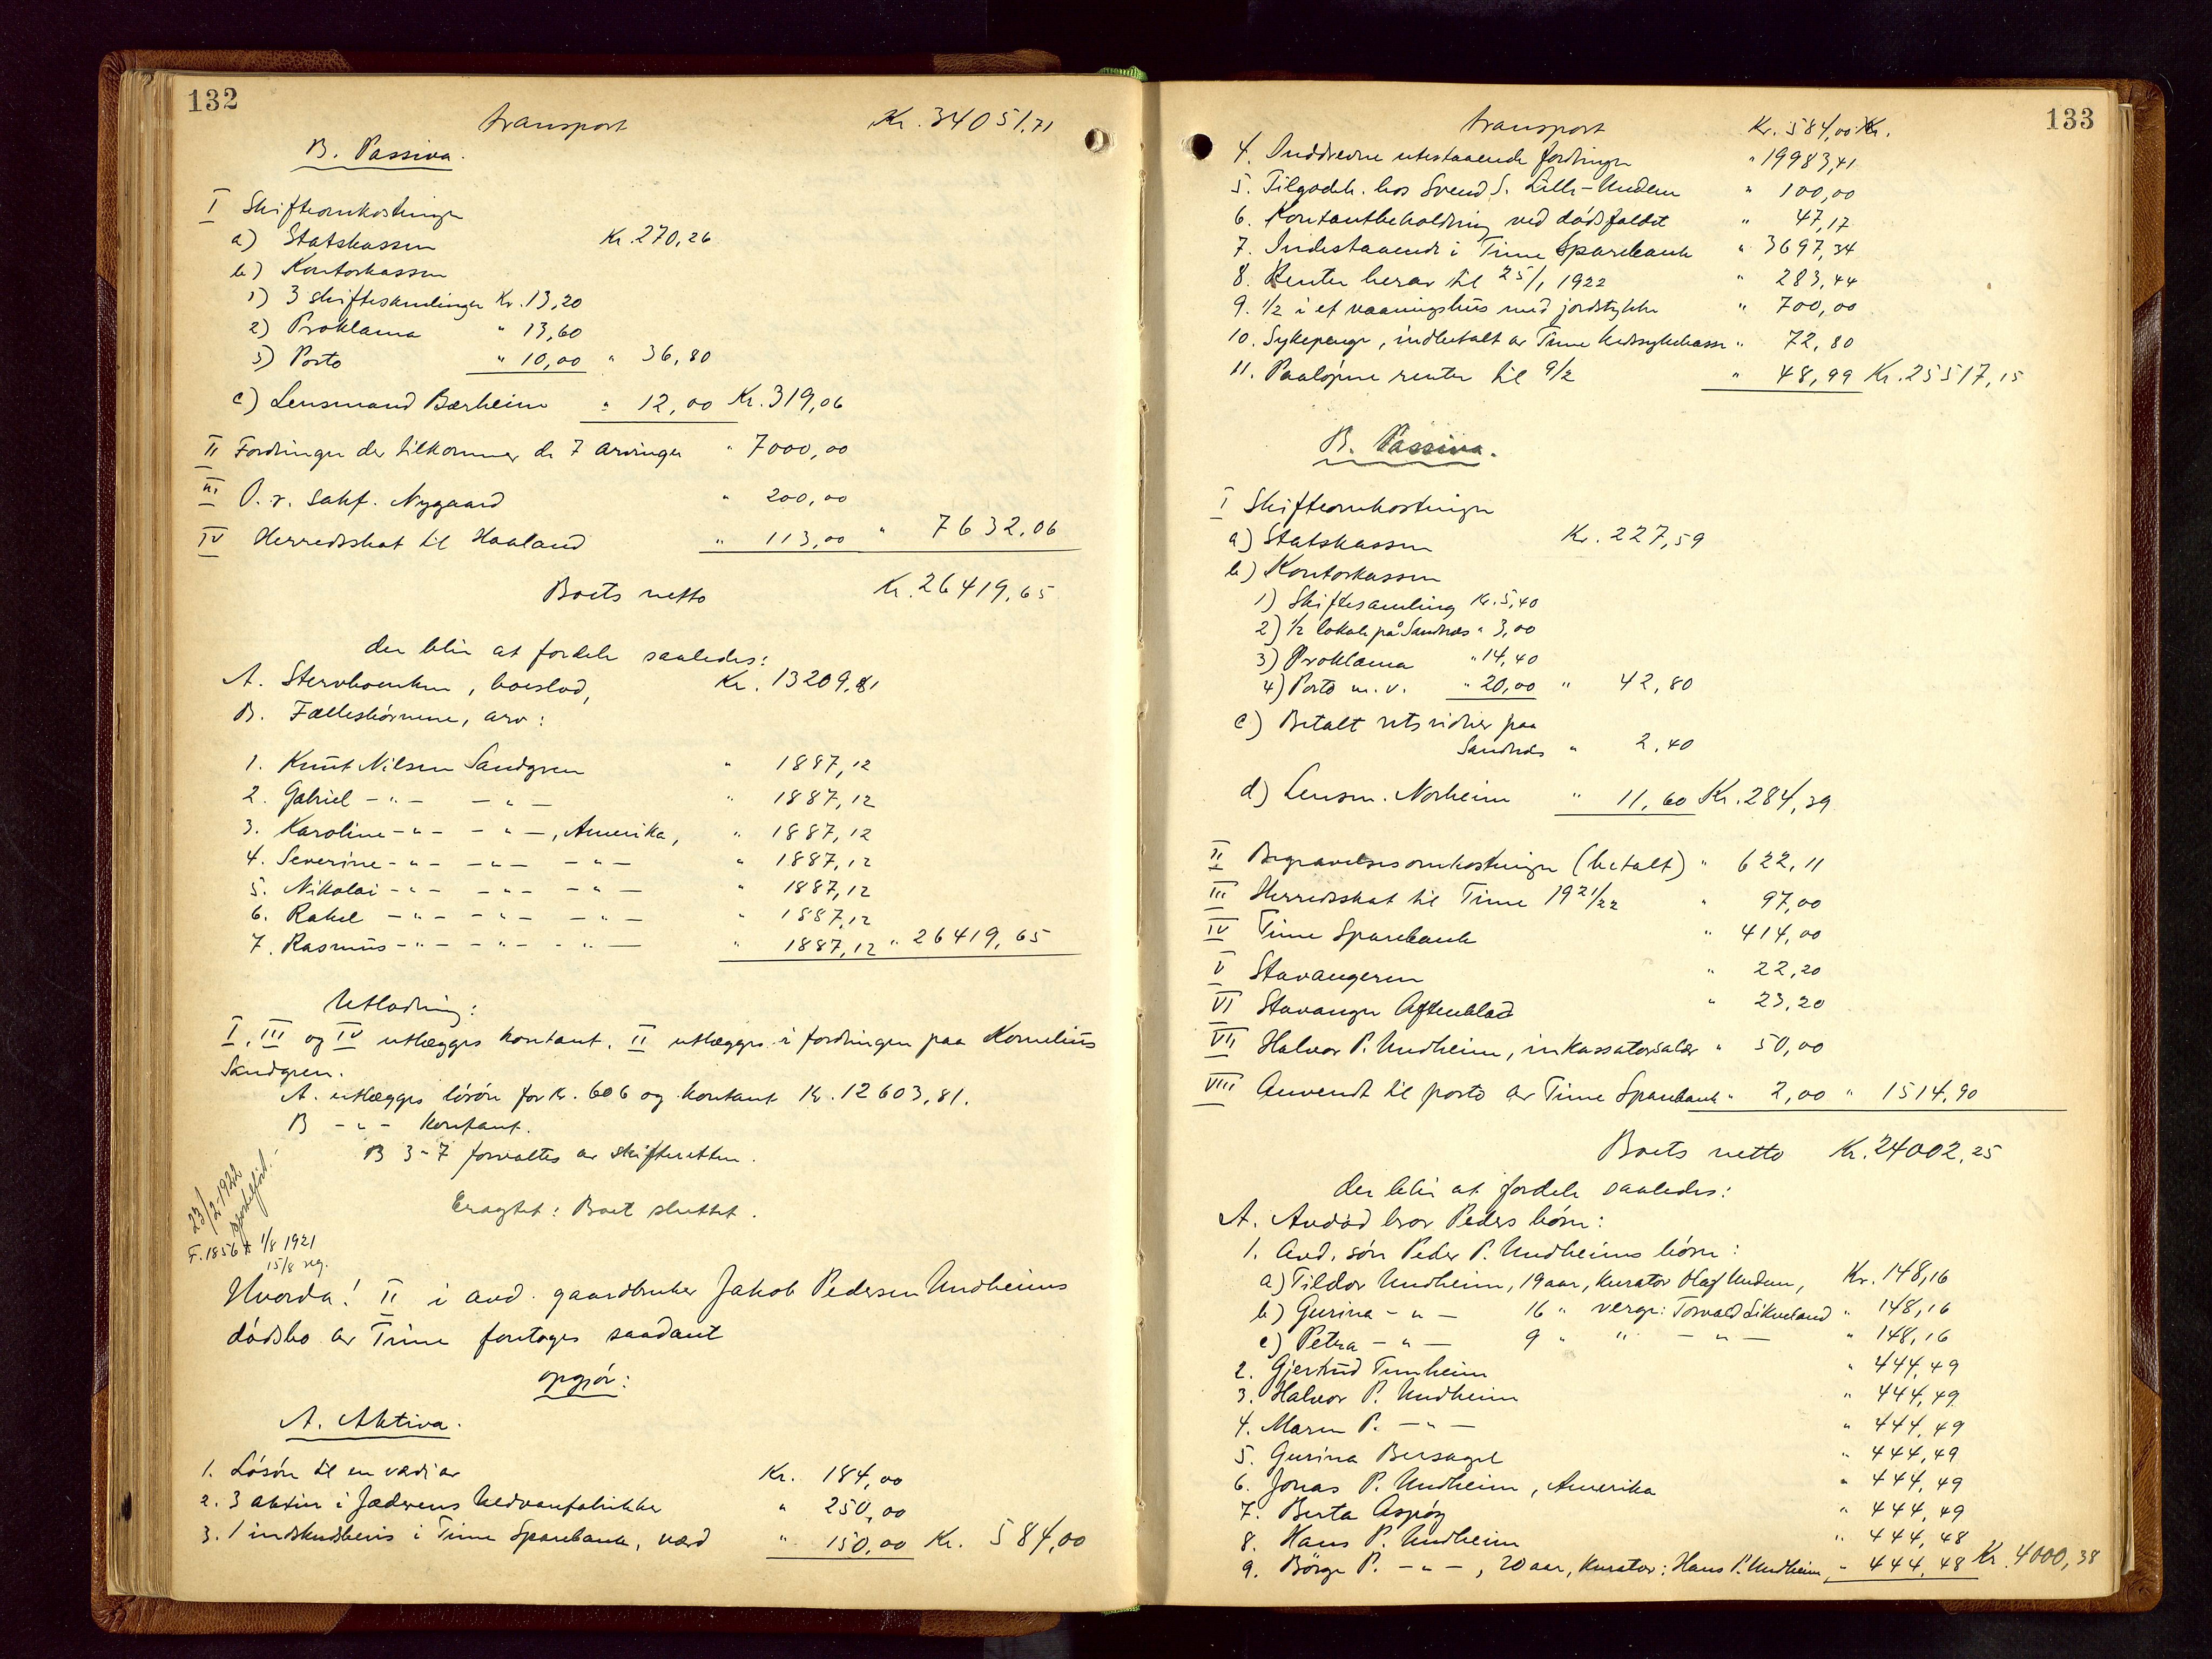 132
transport Kr. 34051,71
B. Passiva.
I Skifteomkostninger
a) Statskassen Kr. 270,26
b) Kontorkassen
1) 3 skiftesamlinger Kr. 13,20
2) Proklama " 13,60
3) Porto " 10,00 " 36,80
c) Lensmand Bærheim " 12,00 Kr. 319,06
II Fordringer der tilkommer de 7 arvinger " 7000,00
III O.r. sakf. Nygaard " 200,00
IV Herredsskat til Haaland " 113,00 " 7632,06
Boets netto Kr. 26419,65
der blir at fordele saaledes:
A. Stervboenken, boeslod, Kr. 13209,81
B. Fællesbørnene, arv:
1. Knut Nilsen Sandgren " 1887,12
2. Gabriel -"- -"- " 1887,12
3. Karoline -"- -"-, Amerika, " 1887,12
4. Severine -"- -"- -"- " 1887,12
5. Nikolai -"- -"- -"- " 1887,12
6. Rakel -"- -"- -"- " 1887,12
7. Rasmus -"- -"- -"- " 1887,12 " 26419,65
Utlodning:
I, III og IV utlægges kontant. II utlægges i fordringen paa Kornelius
Sandgren.
A. utlægges løsøre for kr. 606 og kontant kr. 12603,81.
B -"- kontant.
B 3-7 forvaltes av skifteretten.
Eragtet: Boet sluttet.
23/2-1922
F. 1856 † 1/8 1921
15/8 reg.
Hvorda! II i avd. gaardbruker Jakob Pedersen Undheims
dødsbo av Time foretages saadant
opgjør:
A. Aktiva.
1. Løsøre til en værdi av Kr. 184,00
2. 3 aktier i Jæderens Uldvarefabrikker " 250,00
3. 1 indskudsbevis i Time Sparebank, værd " 150,00 Kr. 584,00
133
transport Kr. 584,00 Kr.
4. Inddrevne utestaaende fordringer " 19983,41
5. Tilgodeh. hos Svend S. Lille-Undem " 100,00
6. Kontantbeholdning ved dødsfaldet " 47,17
7. Indestaaende i Time Sparebank " 3697,34
8. Renter herav til 25/1 1922 " 283,44
9. 1/2 i et vaaningshus med jordstykke " 700,00
10. Sykepenge, indbetalt av Time kredssykekasse " 72,80
11. Paaløpne renter til 9/2 " 48,99 Kr. 25517,15
B. Passiva.
I Skifteomkostninger
a) Statskassen Kr. 227,59
b) Kontorkassen
1) Skiftesamling Kr. 5,40
2) 1/2 lokale på Sandnes " 3,00
3) Proklama " 14,40
4) Porto m.v. " 20,00 " 42,80
c) Betalt retsvidner paa
Sandnes " 2,40
d) Lensm. Norheim " 11,60 Kr. 284,39
II Begravelsesomkostninger (betalt) " 622,11
III Herredsskat til Time 1921/22 " 97,00
IV Time Sparebank " 414,00
V Stavangeren " 22,20
VI Stavanger Aftenblad " 23,20
VII Halvor P. Undheim, inkassatorsalær " 50,00
VIII Anvendt til porto av Time Sparebank " 2,00 " 1514,90
Boets netto Kr. 24002,25
der blir at fordele saaledes:
A. Avdød bror Peders børn:
1. Avd. søn Peder P. Undheims børn:
a) Tildor Undheim, 19 aar, kurator Olaf Undem, Kr. 148,16
b) Gurina -"- 16 " verge: Torvald Sikveland " 148,16
c) Petra -"- 9 " " -"- " 148,16
2. Gjertrud Tunheim " 444,49
3. Halvor P. Undheim " 444,49
4. Maren P. -"- " 444,49
5. Gurina Bersagel " 444,49
6. Jonas P. Undheim, Amerika " 444,49
7. Berta Aspøy " 444,49
8. Hans P. Undheim " 444,48
9. Børge P. -"-, 20 aar, kurator: Hans P. Undheim, " 444,48 Kr. 4000,38